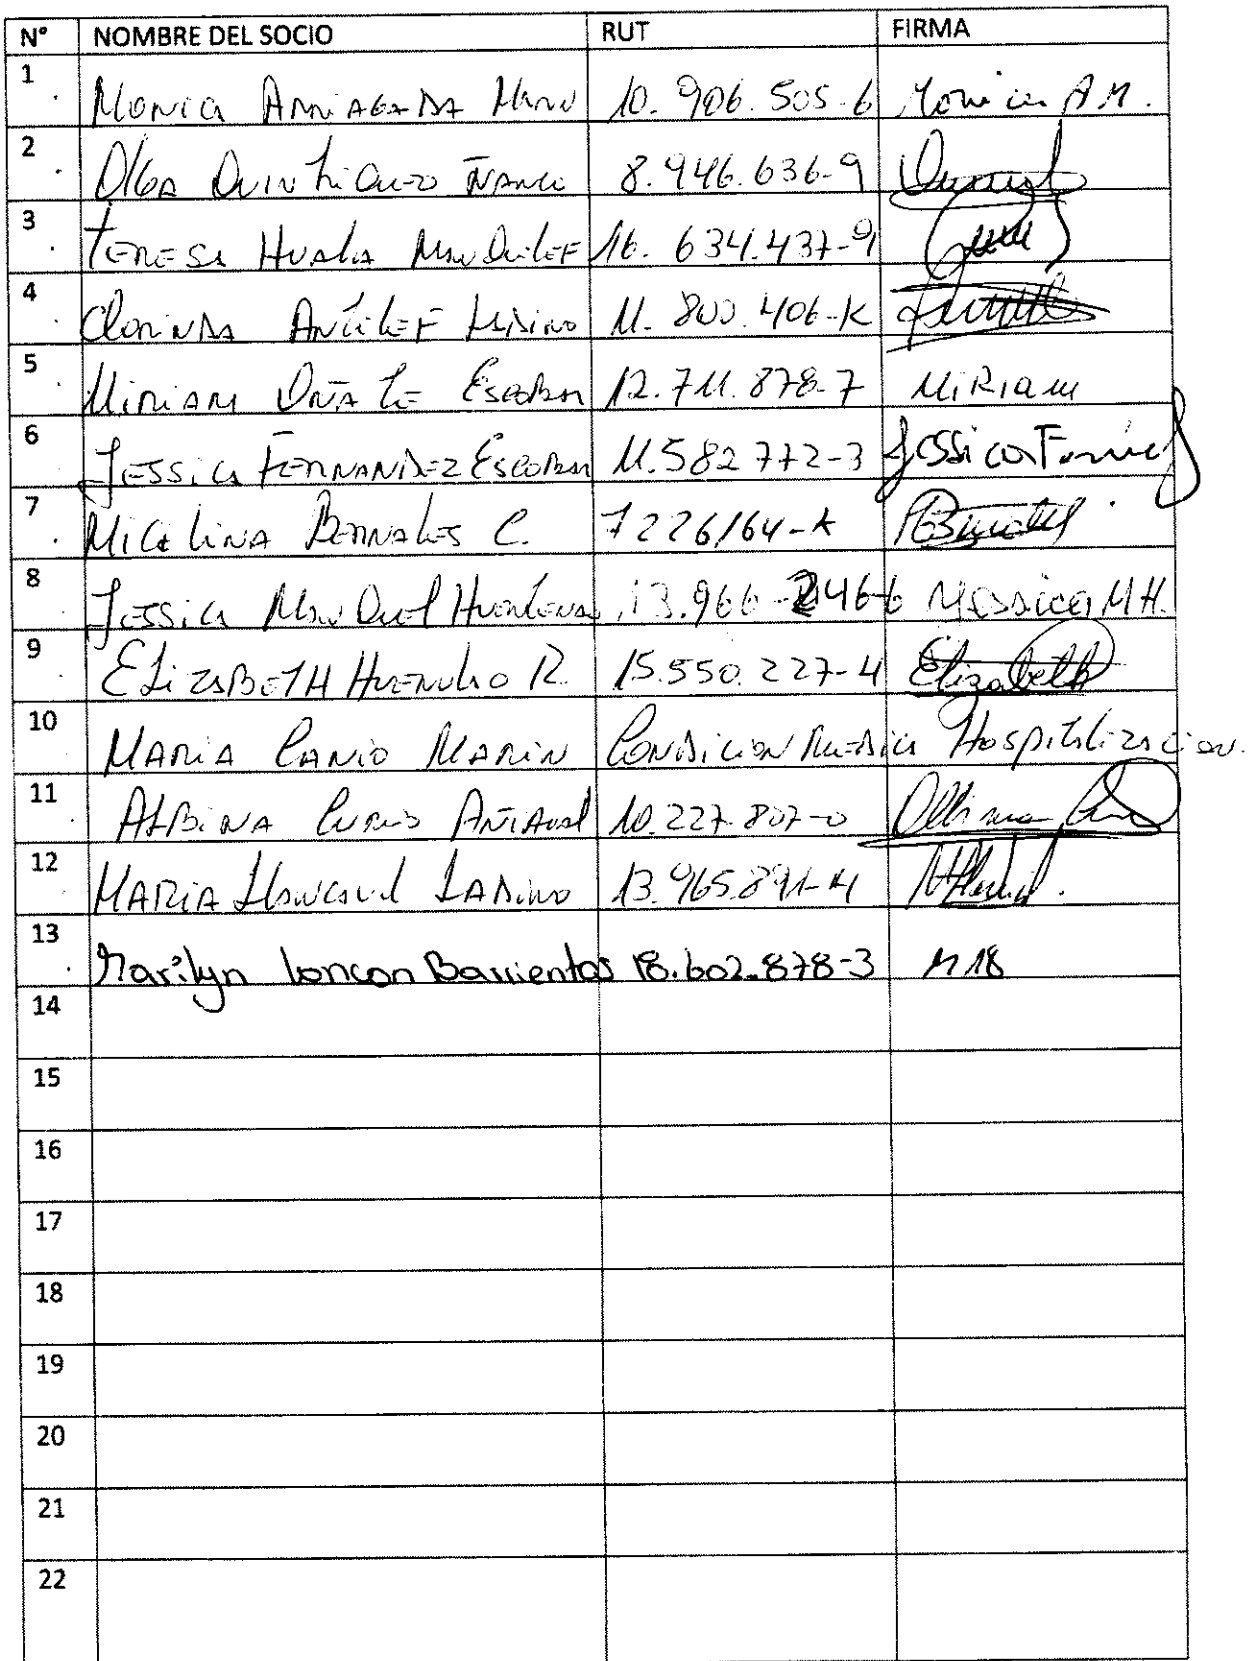 N° NOMBRE DEL SOCIO RUT FIRMA
1 Monica Arriagada 10.906.505-6 Monica A.M.
2 Olga Quintriqueo Ñanco 8.946.636-9
3 Teresa Huala Manquilef 16.634.437-9
4 Clorinda Antilef Ladino 11.800.406-K
5 Miriam Oñate Escobar 12.711.878-7 Miriam
6 Jessica Fernandez Escobar 11.582772-3 Jessica
7 Micelina Bernales C. 7226164-K
8 Jessica 13.966-246-6 Yessica M H.
9 Elizabeth Huenulao R. 15.550.227-4 Elizabeth
10 Maria Canio Marin Condicion Medica Hospitalizacion.
11 Albina Curio 10.227.807-0
12 Maria Ladino 13.965.891-4
13 Marilyn loncon Barrientos 18.602.878-3
14
15
16
17
18
19
20
21
22